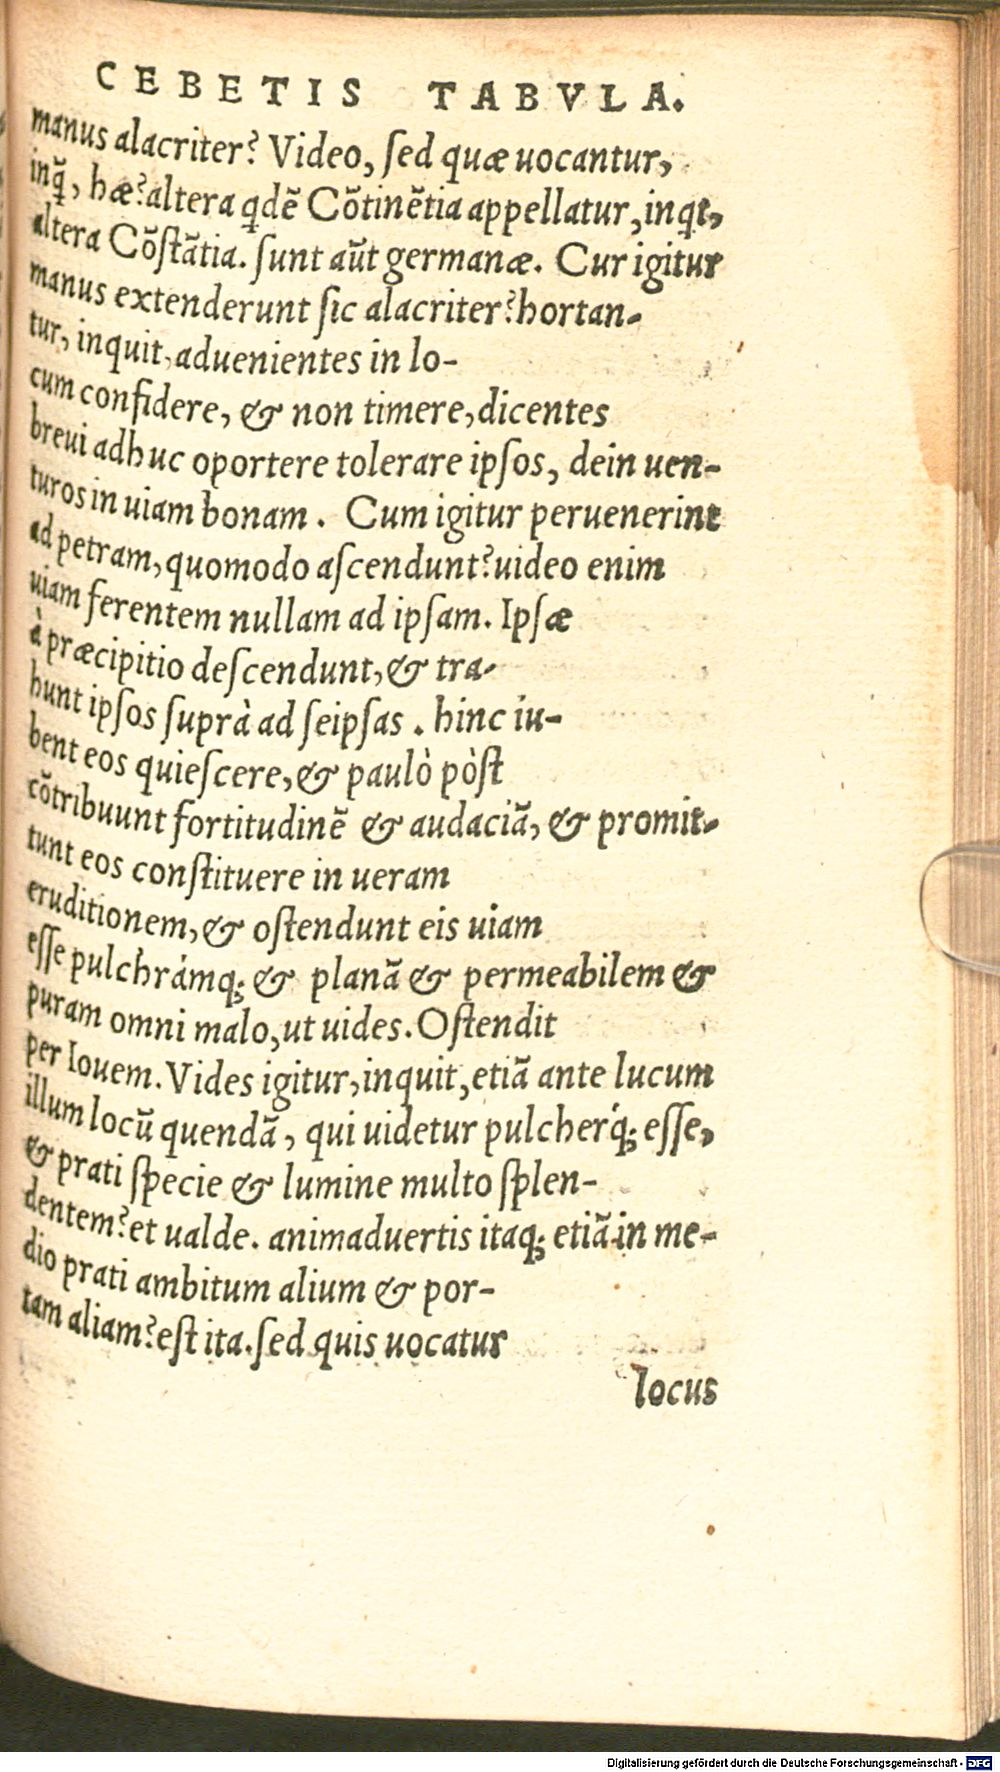 CEBETIS TABVLA.
manus alacriter? Video, ſed quæ uocantur,
inq̃, hæ? altera qdẽ Cõtinẽtia appellatur, inqt,
altera Cõſtãtia. ſunt aũt germanæ. Cur igitur
manus extenderunt ſic alacriter? hortan-
tur, inquit, aduenientes in lo-
cum confidere, & non timere, dicentes
breui adhuc oportere tolerare ipſos, dein uen-
turos in uiam bonam. Cum igitur peruenerint
ad petram, quomodo aſcendunt? uideo enim
uiam ferentem nullam ad ipſam. Ipſæ
à præcipitio deſcendunt, & tra-
hunt ipſos ſuprà ad ſeipſas. hinc iu-
bent eos quieſcere, & paulò pòſt
cõtribuunt fortitudinẽ & audaciã, & promit-
tunt eos conſtituere in ueram
eruditionem, & oſtendunt eis uiam
eſſe pulchrámq; & planã & permeabilem &
puram omni malo, ut uides. Oſtendit
per Iouem. Vides igitur, inquit, etiã ante lucum
illum locũ quendã, qui uidetur pulcherq́; eſſe,
& prati ſpecie & lumine multo ſplen-
dentem? et ualde. animaduertis itaq; etiã in me-
dio prati ambitum alium & por-
tam aliam? eſt ita. ſed quis uocatur
locus
Digitalisierung gefördert durch die Deutsche Forschungsgemeinschaft - DFG